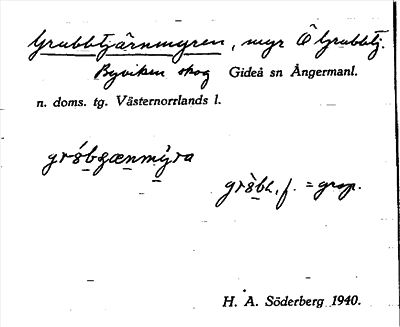 Grubbtjärnmyren, myr Ö Grubbtj.
Byviken skog Gideå sn Ångermanl.
n. doms. tg. Västernorrlands l.
grȯbʒænmy̆ra
grȯbɩ, f. = grop.
H. A. Söderberg 1940.